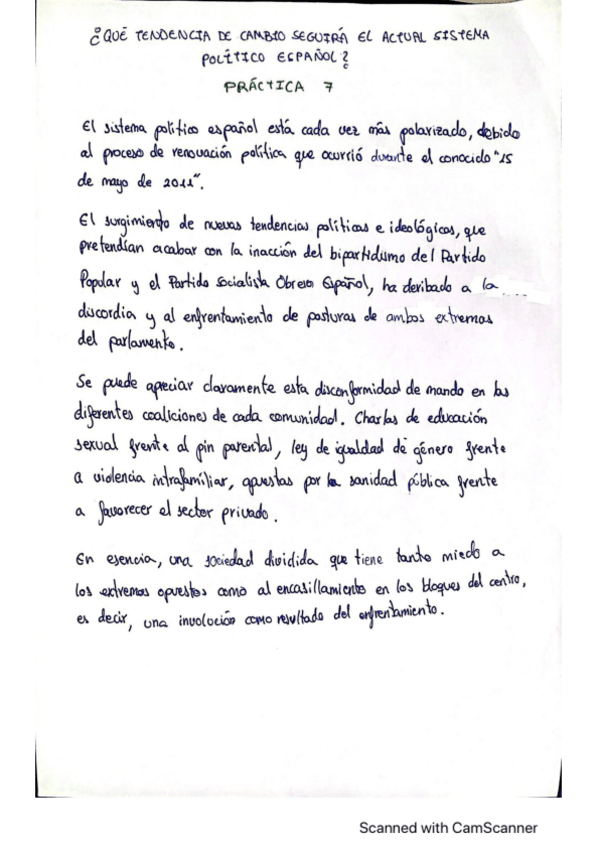 ¿QUÉ TENDENCIA DE CAMBIO SEGUIRÁ EL ACTUAL SISTEMA
POLÍTICO ESPAÑOL?
PRÁCTICA 7
El sistema político español está cada vez más polarizado, debido
al proceso de renovación política que ocurrió durante el conocido "15
de mayo de 2011".
El surgimiento de nuevas tendencias políticas e ideológicas, que
pretendían acabar con la inacción del bipartidismo del Partido
Popular y el Partido Socialista Obrero Español, ha deribado a la ....
discordia y al enfrentamiento de posturas de ambos extremos
del parlamento.
Se puede apreciar claramente esta disconformidad de mando en las
diferentes coaliciones de cada comunidad. Charlas de educación
sexual frente al pin parental, ley de igualdad de género frente
a violencia intrafamiliar, apuestas por la sanidad pública frente
a favorecer el sector privado.
En esencia, una sociedad dividida que tiene tanto miedo a
los extremos opuestos como al encasillamiento en los bloques del centro,
es decir, una involución como resultado del enfrentamiento.
Scanned with CamScanner